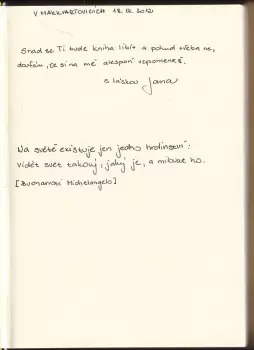 V MARKVARTOVICÍCH 18.12.2012
Snad se Ti bude kniha líbit a pokud třeba ne,
doufám, že si na mě alespoň vzpomeneš.
s láskou Jana
Na světě existuje jen jedno hrdinství:
vidět svět takový, jaký je, a milovat ho.
[Buonarroti Michelangelo]